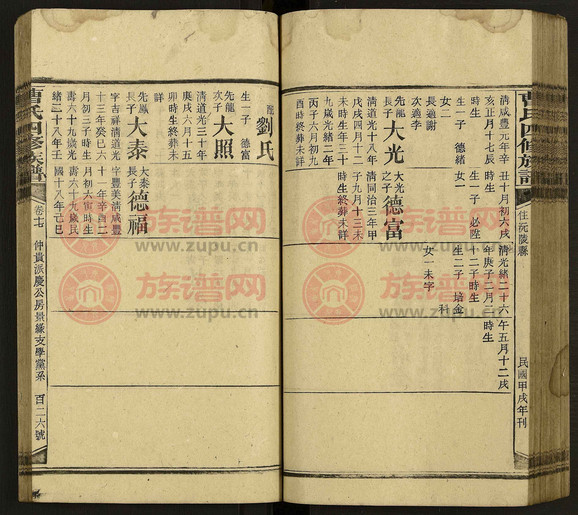 曹氏四修族譜
住沅陵縣
民國甲戌年刊
清咸豐元年辛
亥正月十七辰
時生
生一子 德緒
女二
長適謝
次適李
丑十月初六戌
時生
生一子 必陞
女一
清光緒二十六
年庚子二月二
十二時生
生二子 培金
科
女一未字
午五月十二戌
時生
先龍之子 大光
清道光十八年
戊戌四月十二
未時生年三十
九歲光緒二年
丙子六月初九
酉時終葬未詳
大光之子 德富
清同治三年甲
子九月十三未
時生終葬未詳
配 劉氏
生一子 德富
先龍次子 大照
清道光三十年
庚戌六月十五
卯時生終葬未
詳
先鳳長子 大泰
字吉祥清道光
十三年癸巳六
月初三子時生
壽六十九歲光
緒二十八年壬
大泰長子 德福
字豐美清咸豐
十一年辛酉二
月初六寅時生
壽六十九歲民
國十八年己巳
曹氏四修族譜
卷十七
仲貴派慶公房景緣支學黨系
百二六號
族谱网
www.zupu.cn
族谱网
www.zupu.cn
族谱网
www.zupu.cn
族谱网
www.zupu.cn